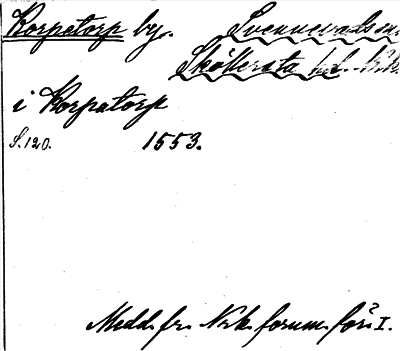 Korpetorp by. Svennevads sn.
Sköllersta hd. Nrk.
i Korpatorp
S. 120. 1553.
Medd. fr. Nrk. fornm. för. I.